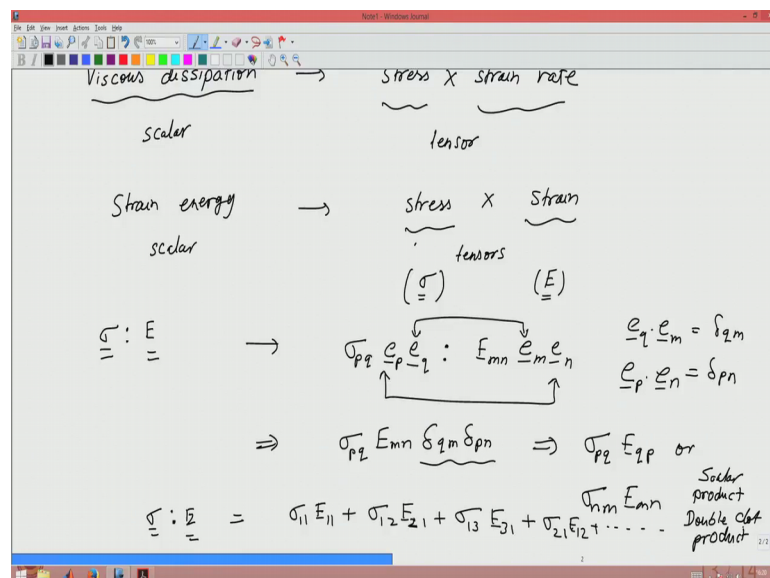 Note1 - Windows Journal
File Edit View Insert Actions Tools Help
100%
B I
Viscous dissipation → stress × strain rate
scalar tensor
Strain energy → stress × strain
scalar tensors
(σ) (E)
σ : E → σpq ep eq : Emn em en eq · em = δqm
ep · en = δpn
⇒ σpq Emn δqm δpn ⇒ σpq Eqp or
σnm Emn Scalar product
σ : E = σ11 E11 + σ12 E21 + σ13 E31 + σ21 E12 + ..... Double dot product
2/2
2